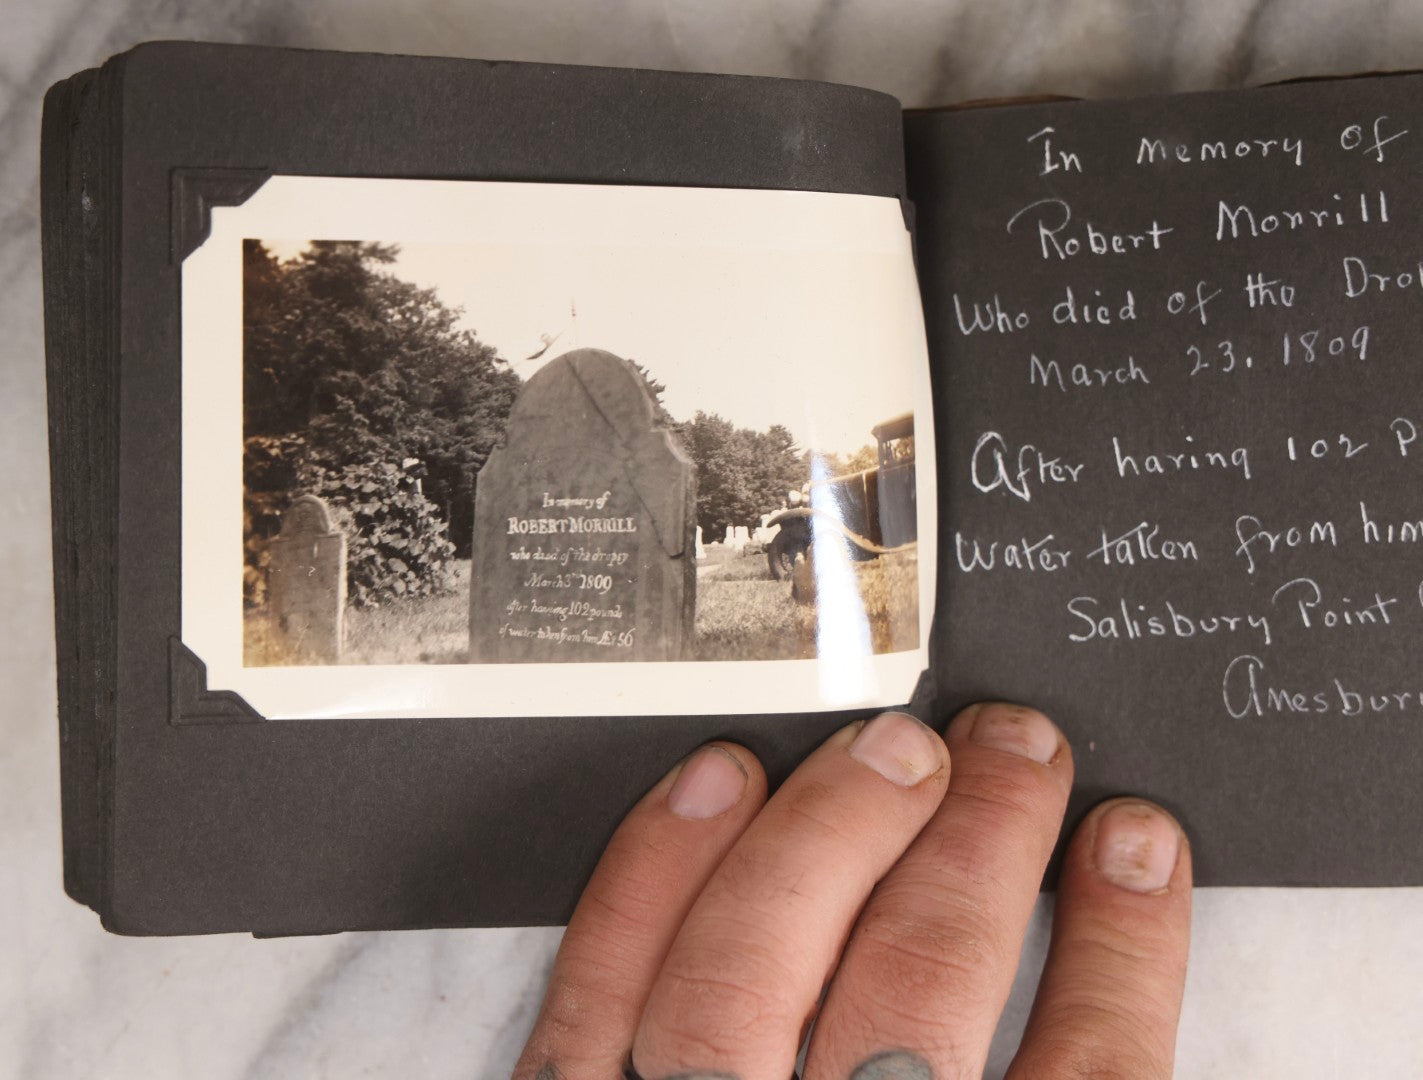 In memory of
ROBERT MORRILL
who died of the dropsy
March 3d 1809
after having 102 pounds
of water taken from him Æt 56
In memory of
Robert Morrill
Who died of the Drop
March 23, 1809
After having 102 P
water taken from him
Salisbury Point
Amesbury